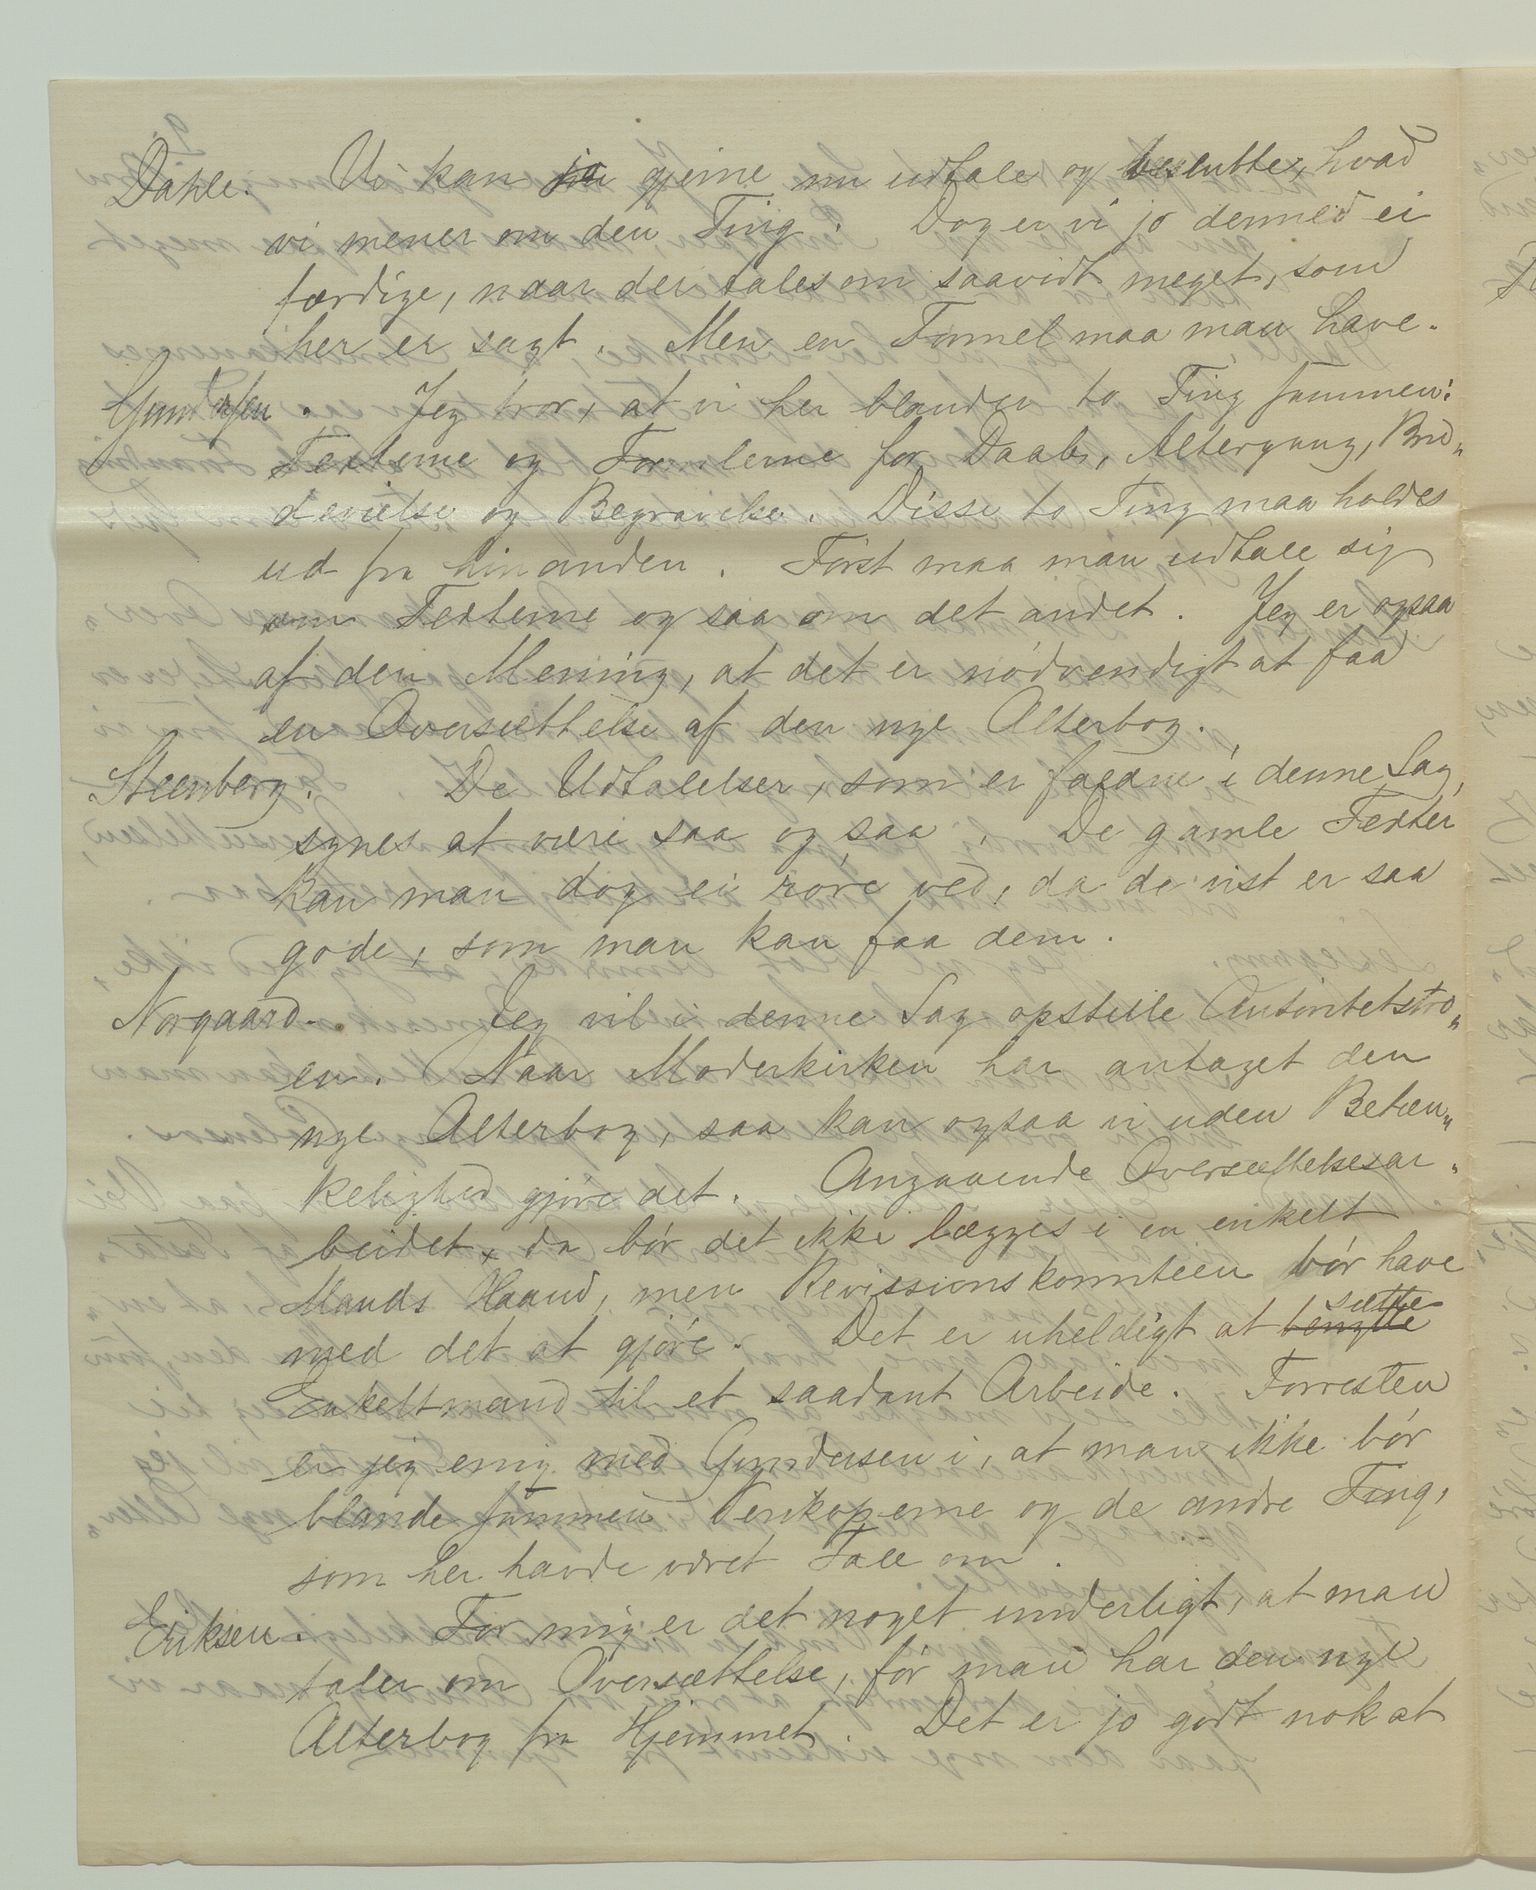 Dahle. Vi kan jo gjerne nu udtale og beslutte, hvad
vi mener om den Ting. Dog er vi jo dermed ei
færdige, naar der tales om saavidt meget, som
her er sagt. Men en Formel maa man have.
Gundersen. Jeg tror, at vi her blander to Ting sammen:
Texterne og Formlerne for Daab, Altergang, Bru„
devielse og Begravelse. Disse to Ting maa holdes
ud fra hinanden. Först maa man udtale sig
om Texterne og saa om det andet. Jeg er ogsaa
af den Mening, at det er nödvendigt at faa
en Oversættelse af den nye Alterbog.
Steenberg. De Udtalelser, som er faldne i denne Sag,
synes at være saa og saa. De gamle Texter
kan man dog ei röre ved, da de vist er saa
gode, som man kan faa dem.
Norgaard. Jeg vil i denne Sag opstille Autoritetstro„
en. Naar Moderkirken har antaget den
nye Alterbog, saa kan ogsaa vi uden Betæn„
kelighed gjöre det. Angaaende Oversættelsesar„
beidet, da bör det ikke lægges i en enkelt
Mands Haand, men Revissionskomiteen bör have
med det at gjöre. Det er uheldigt at benytte sætte
Enkeltmand til et saadant Arbeide. Forresten
er jeg enig med Gundersen i, at man ikke bör
blande sammen Perikoperne og de andre Ting,
som her havde været Tale om.
Eriksen. For mig er det noget underligt, at man
taler om Oversættelse, för man har den nye
Alterbog fra Hjemmet. Det er jo godt nok at